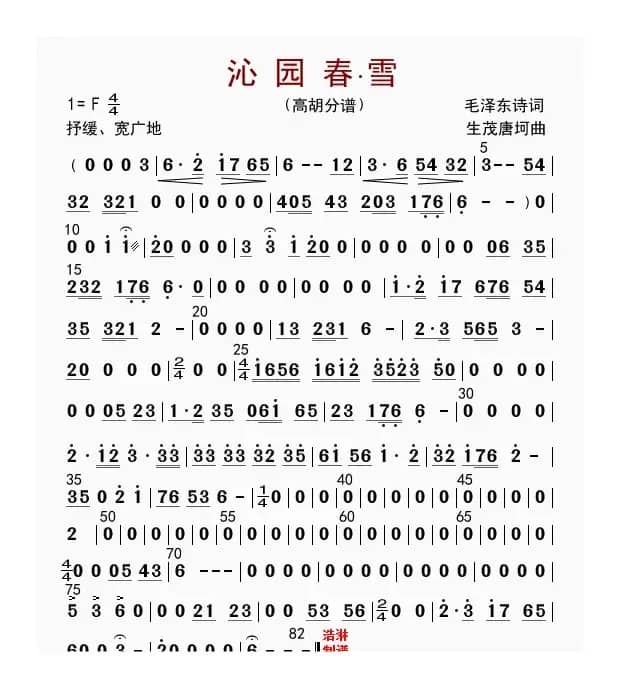 沁园春·雪
1=F 4/4 （高胡分谱） 毛泽东诗词
抒缓、宽广地 生茂唐坷曲
5
(0 0 0 3|6· 2 17 65|6 - - 12|3· 6 54 32|3 - - 54|
32 321 0 0|0 0 0 0|405 43 203 176|6 - - )0|
10
0 0 1 1|20 0 0 0|3 3 1 20 0|0 0 0 0|0 0 06 35|
15
232 176 6· 0|0 0 0 0|0 0 0 0|1·2 17 676 54|
20
35 321 2 -|0 0 0 0|13 231 6 -|2·3 565 3 -|
25
20 0 0 0|2/4 0 0|4/4 1656 1612 3523 50|0 0 0 0|
30
0 0 05 23|1·2 35 061 65|23 176 6 -|0 0 0 0|
2· 12 3· 33|33 33 32 35|61 56 1· 2|32 176 2 -|
35 40 45
35 0 2 1|76 53 6 -|1/4 0|0|0|0|0|0|0|0|0|
50 55 60 65
2 |0|0|0|0|0|0|0|0|0|0|0|0|0|0|0|0|0|
70
4/4 0 0 05 43|6 - - -|0 0 0 0|0 0 0 0|0 0 0 0|
75
5 3 6 0|0 0 21 23|0 0 53 56|2/4 0 0|2·3 17 65|
82 浩淋
60 0 3 -|0 0 0 0|0 0 0 2|6 - - -‖制谱